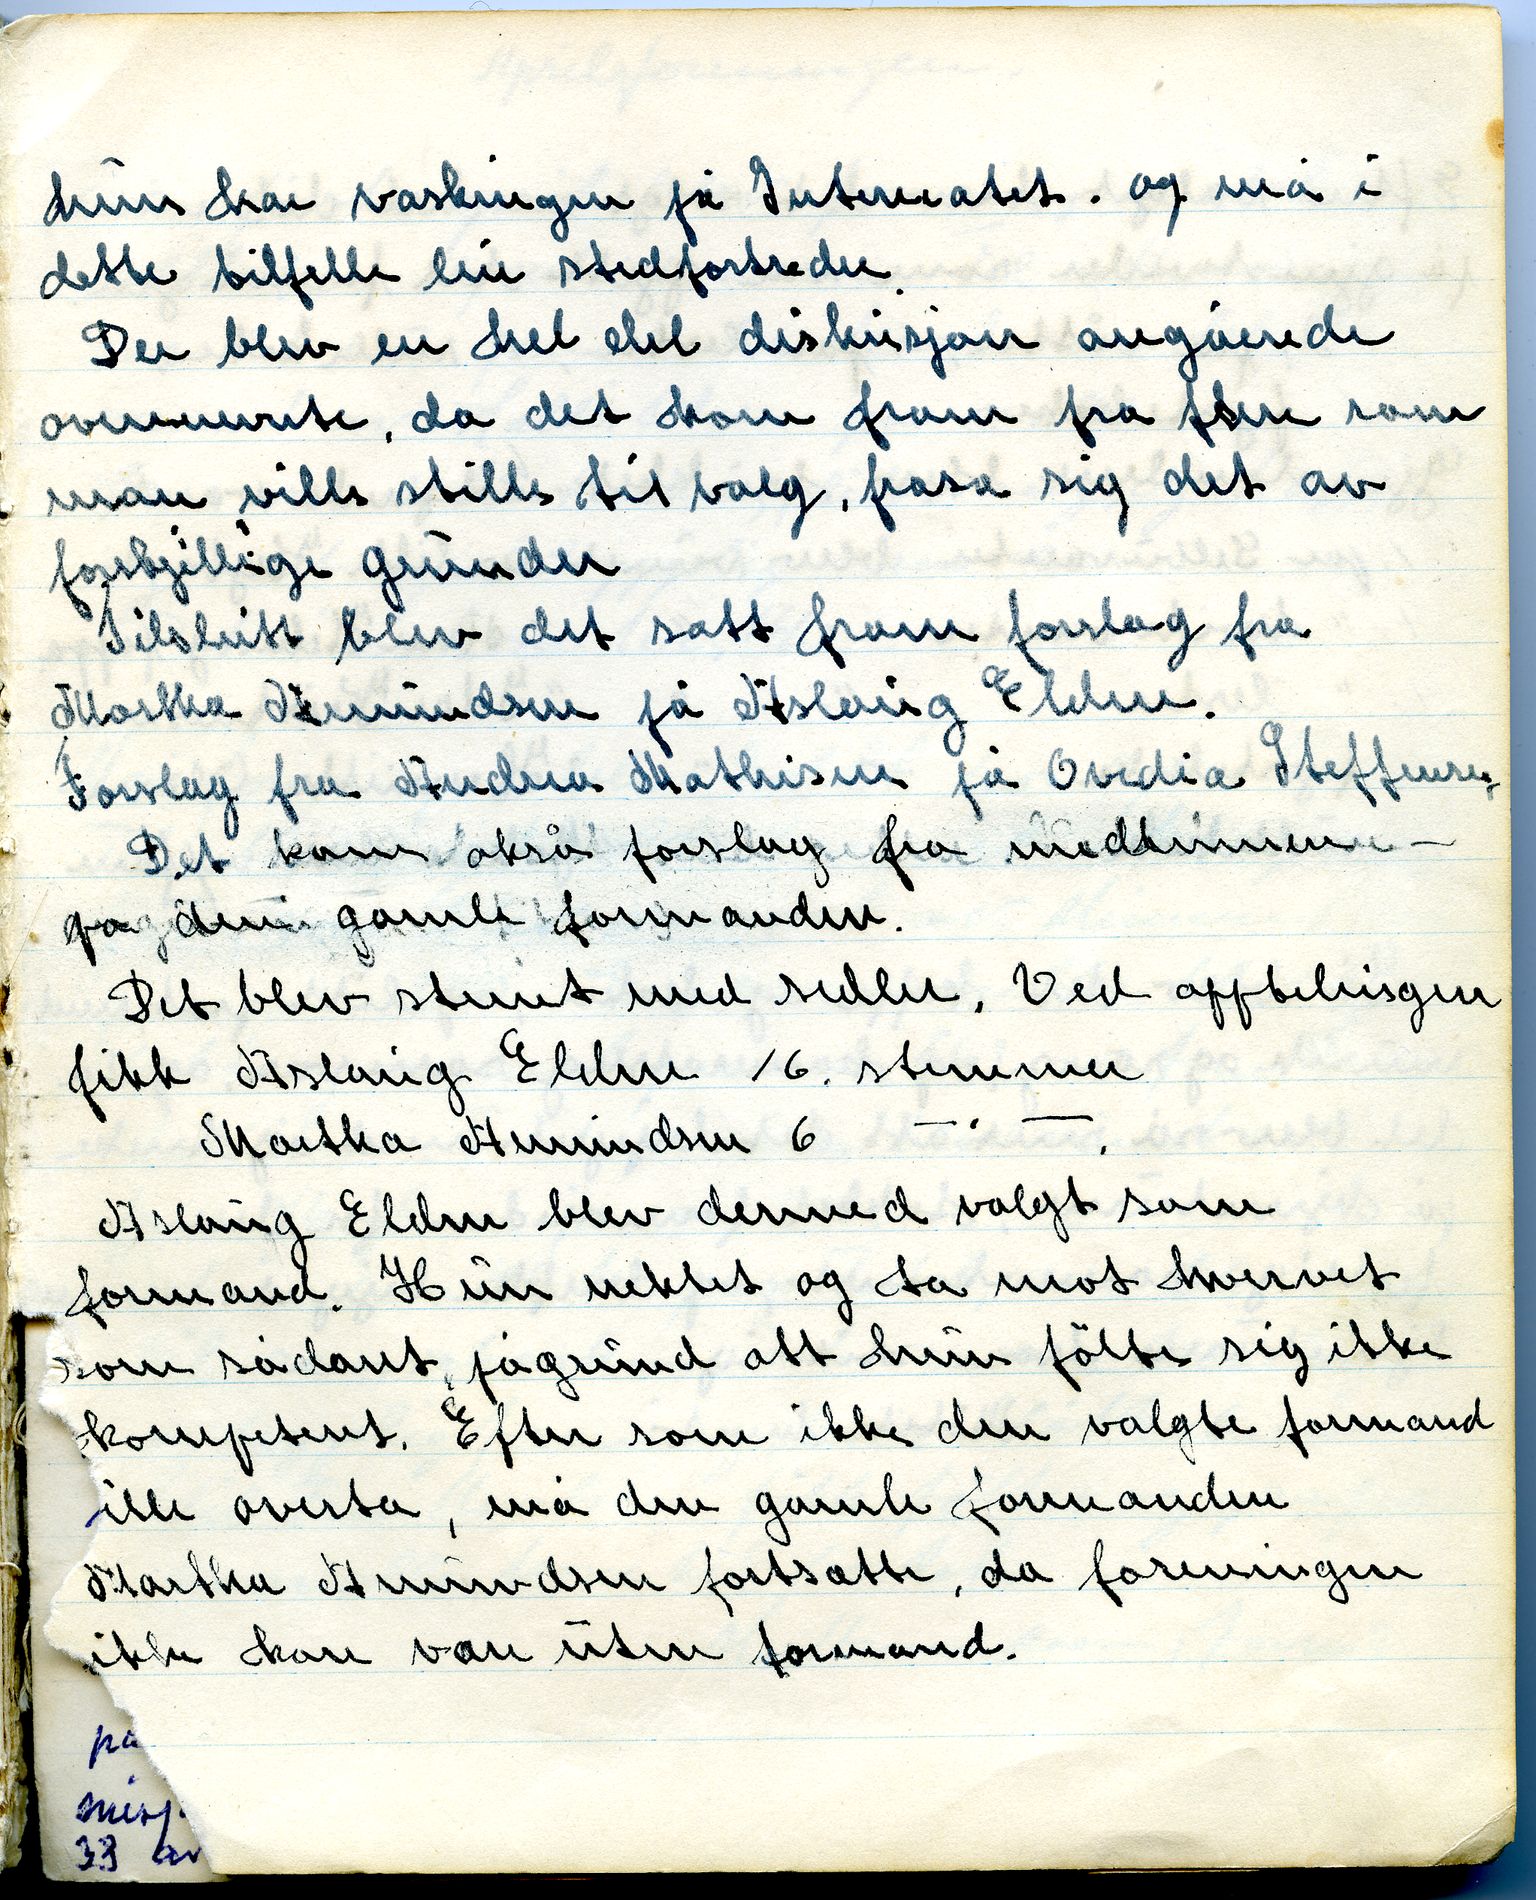 hun har vaskingen på Internatet. og må i
dette tilfelle leie stedfortreder.
Der blev en hel del diskusjon angående
ovennevnte, da det kom fram fra flere som
man ville stille til valg, frasa sig det av
forskjillige grunder
Tilslutt blev det satt fram forslag fra
Martha Amundsen på Aslaug Elden.
Forslag fra Andrea Mathisen på Ovedia Steffensen,
Det kom også forslag fra medlemmer —
på den gamle formanden.
Det blev stemt med sedler. Ved opptelingen
fikk Aslaug Elden 16. stemmer
Martha Amundsen 6 —"—.
Aslaug Elden blev dermed valgt som
formand. Hun nektet og ta mot hvervet
som sådant, pågrund att hun fölte sig ikke
kompetent. Efter som ikke den valgte formand
ille overta, må den gamle formanden
Martha Amundsen fortsatte, da foreningen
ikke kan være uten formand.
på
misj
33 av